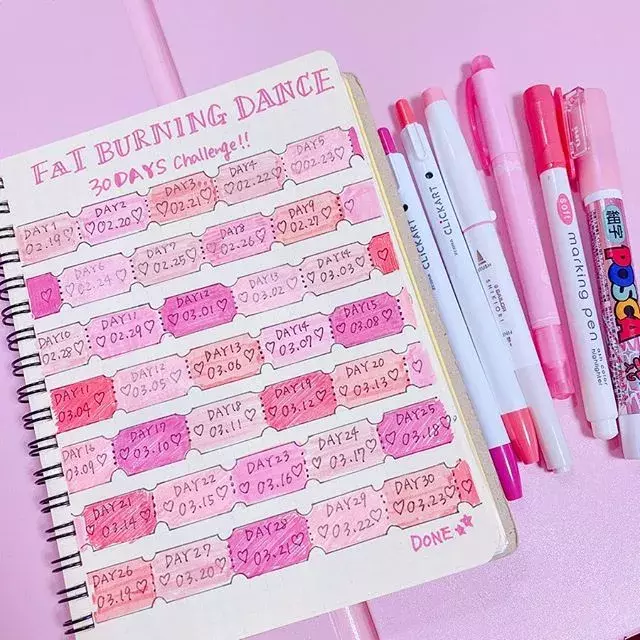 FAT BURNING DANCE
30 DAYS Challenge!!
DAY1 DAY2 DAY3 DAY4 DAY5
♡02.19♡ ♡02.20♡ ♡02.21♡ ♡02.22♡ ♡02.23♡
DAY6 DAY7 DAY8 DAY9
♡02.24♡ ♡02.25♡ ♡02.26♡ ♡02.27♡
DAY10 DAY11 DAY12 DAY13 DAY14
02.28♡ ♡02.29♡ ♡03.01♡ ♡03.02♡ ♡03.03♡
DAY11 DAY12 DAY13 DAY14 DAY15
03.04♡ ♡03.05♡ ♡03.06♡ ♡03.07♡ ♡03.08♡
DAY16 DAY17 DAY18 DAY19 DAY20
03.09♡ ♡03.10♡ ♡03.11♡ ♡03.12♡ ♡03.13♡
DAY21 DAY22 DAY23 DAY24 DAY25
♡03.14♡ ♡03.15♡ ♡03.16♡ ♡03.17♡ ♡03.18♡
DAY26 DAY27 DAY28 DAY29 DAY30
♡03.19♡ ♡03.20♡ ♡03.21♡ ♡03.22♡ ♡03.23♡
DONE
CLiCKART
CLiCKART
SAILOR
SHIKIORI
soft
marking pen
highlighter
細字
POSCA